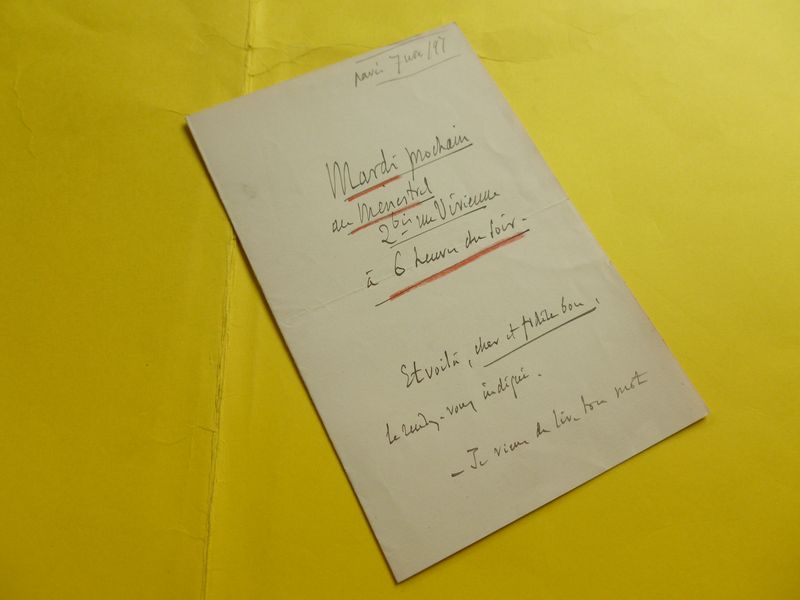 Paris 7 nov/97
Mardi prochain
au Ménestrel
2 bis rue Vivienne
à 6 heures du soir.
Et voilà, cher et fidèle bon,
le rendez-vous indiqué.
– Je viens de lire ton mot